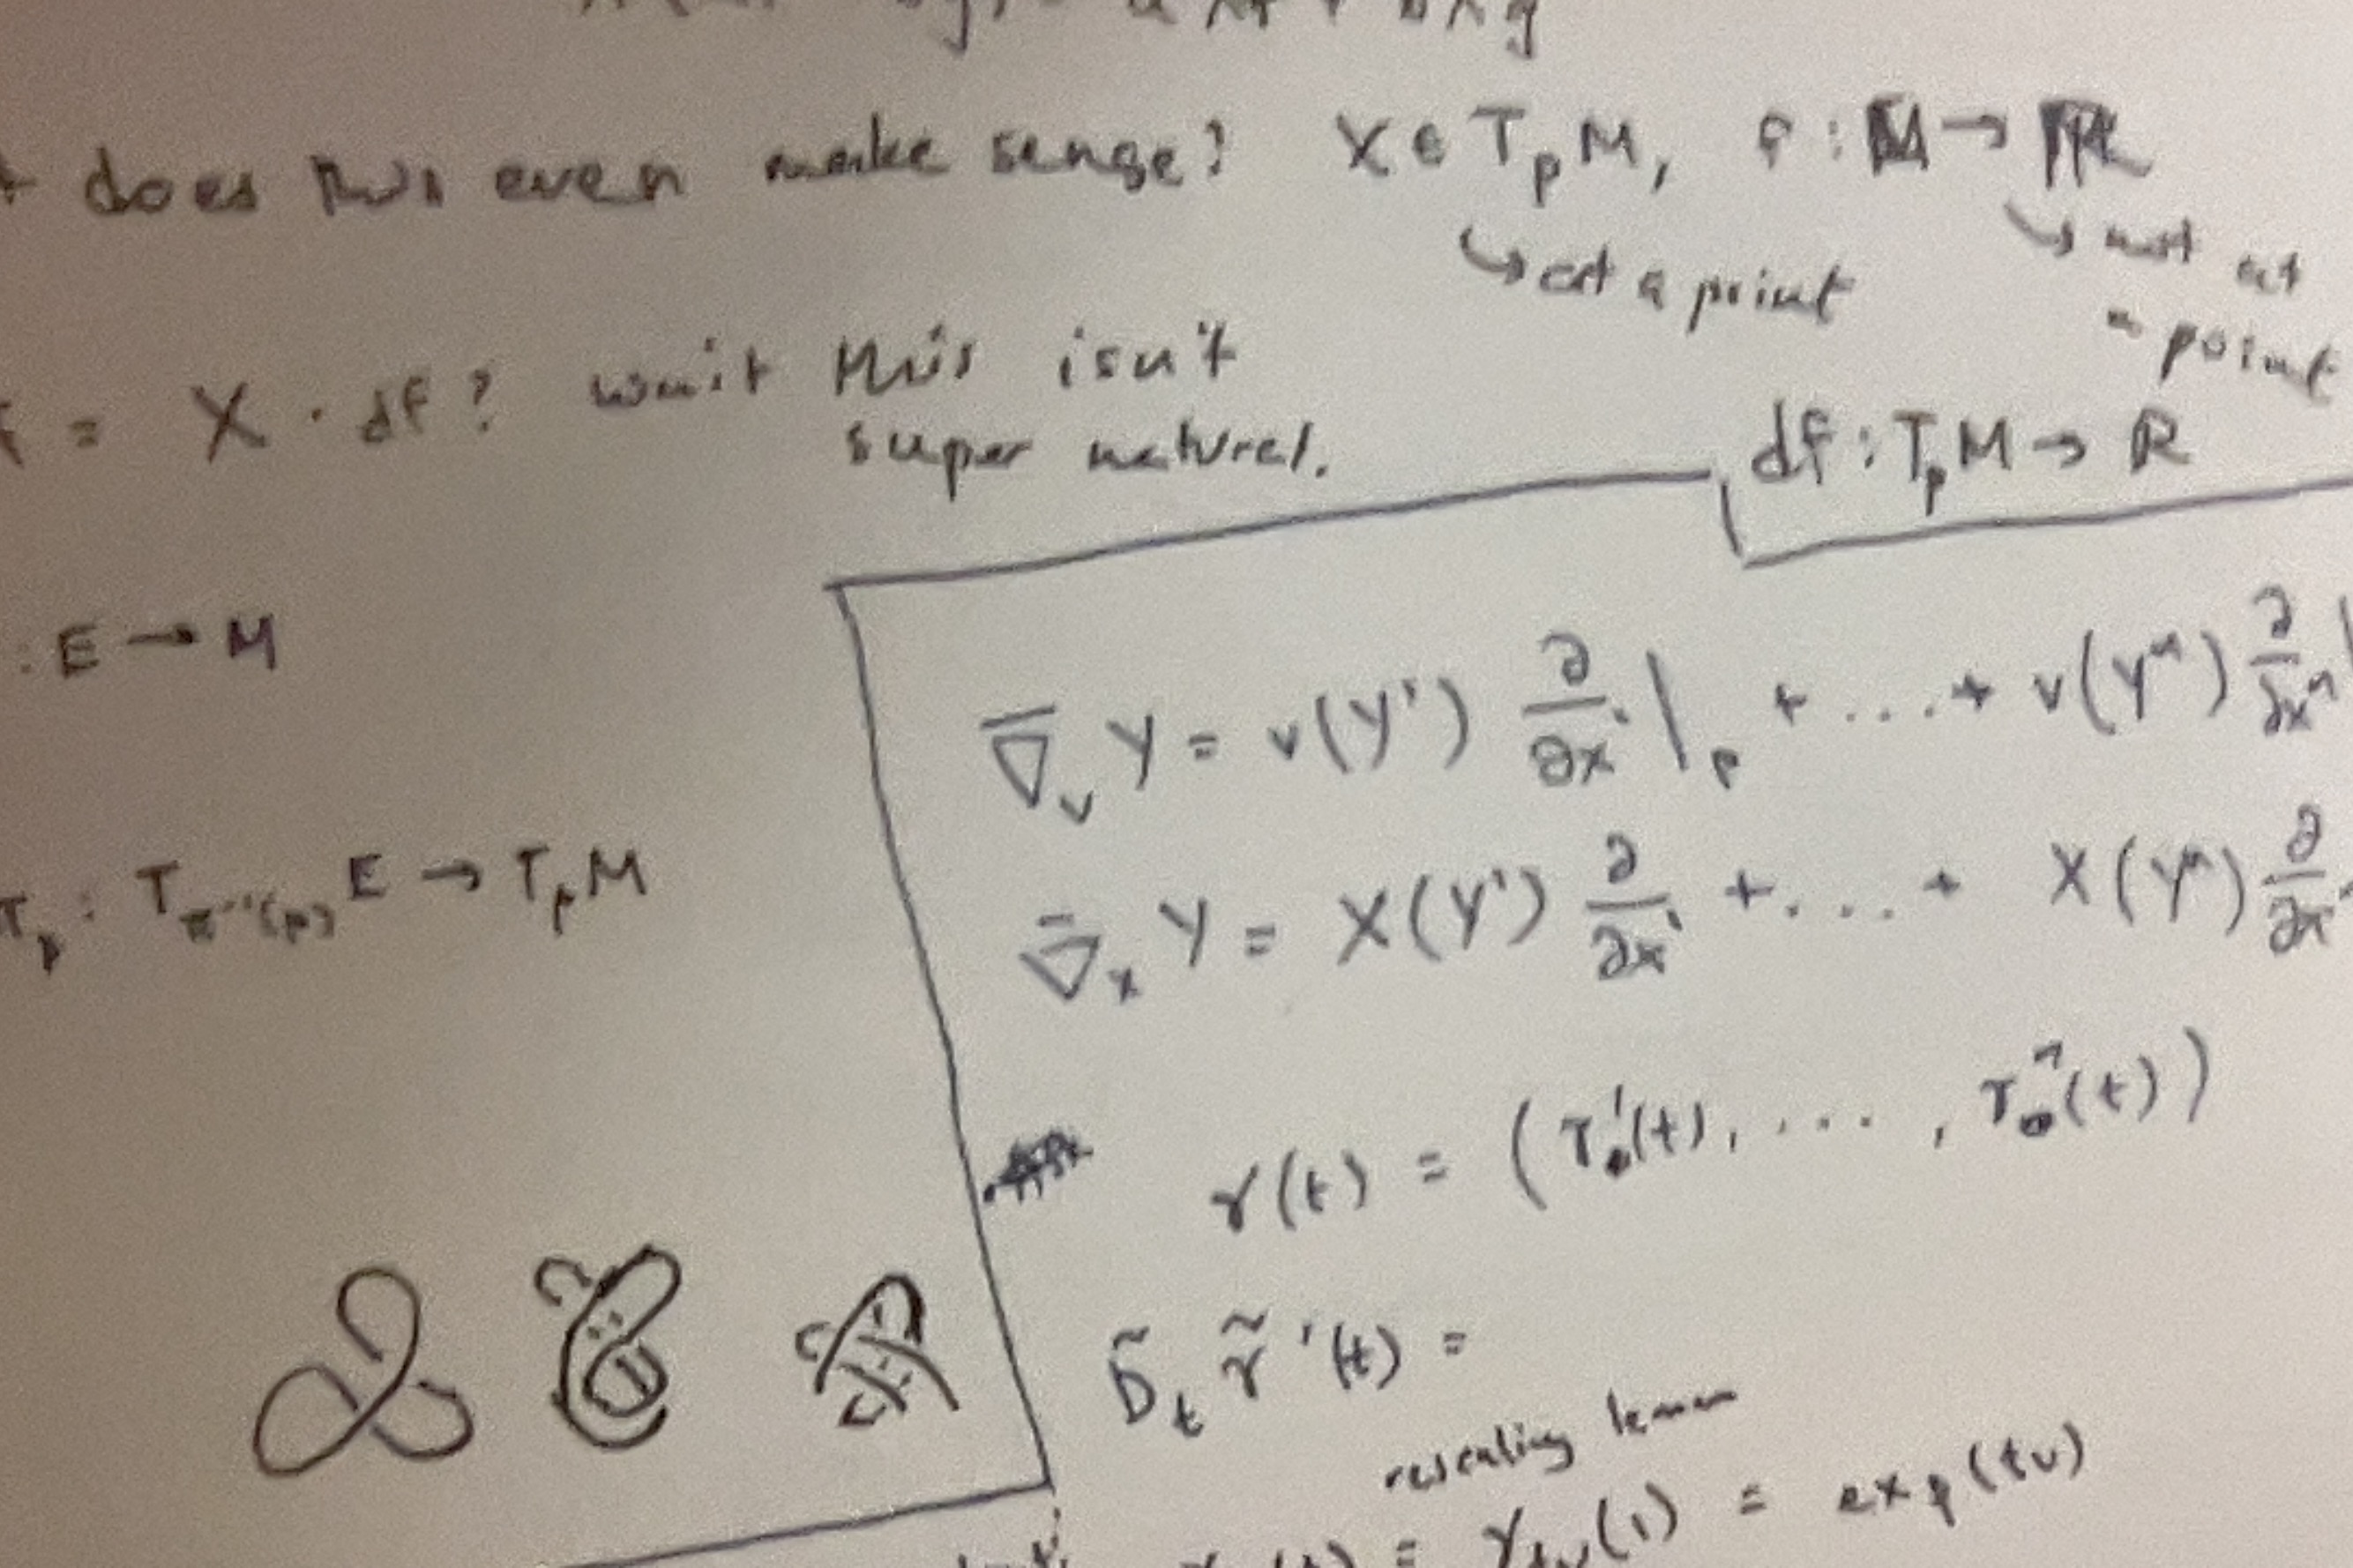 does this even make sense? X ∈ T_p M, f : M → R
↳ at a point
↳ not at
a point
= X · df? wait this isn't
super natural.
df : T_p M → R
: E → M
∇̅_v Y = v(Y¹) ∂/∂x¹ |_p + ... + v(Yⁿ) ∂/∂xⁿ |
: T_{π⁻¹(p)} E → T_p M
∇̅_X Y = X(Y¹) ∂/∂x¹ + .... + X(Yⁿ) ∂/∂xⁿ
γ(t) = (γ¹(t), ...., γⁿ(t))
D̃_t γ̃'(t) =
rescaling lemma
(t) = γ_{tv}(1) = exp(tv)